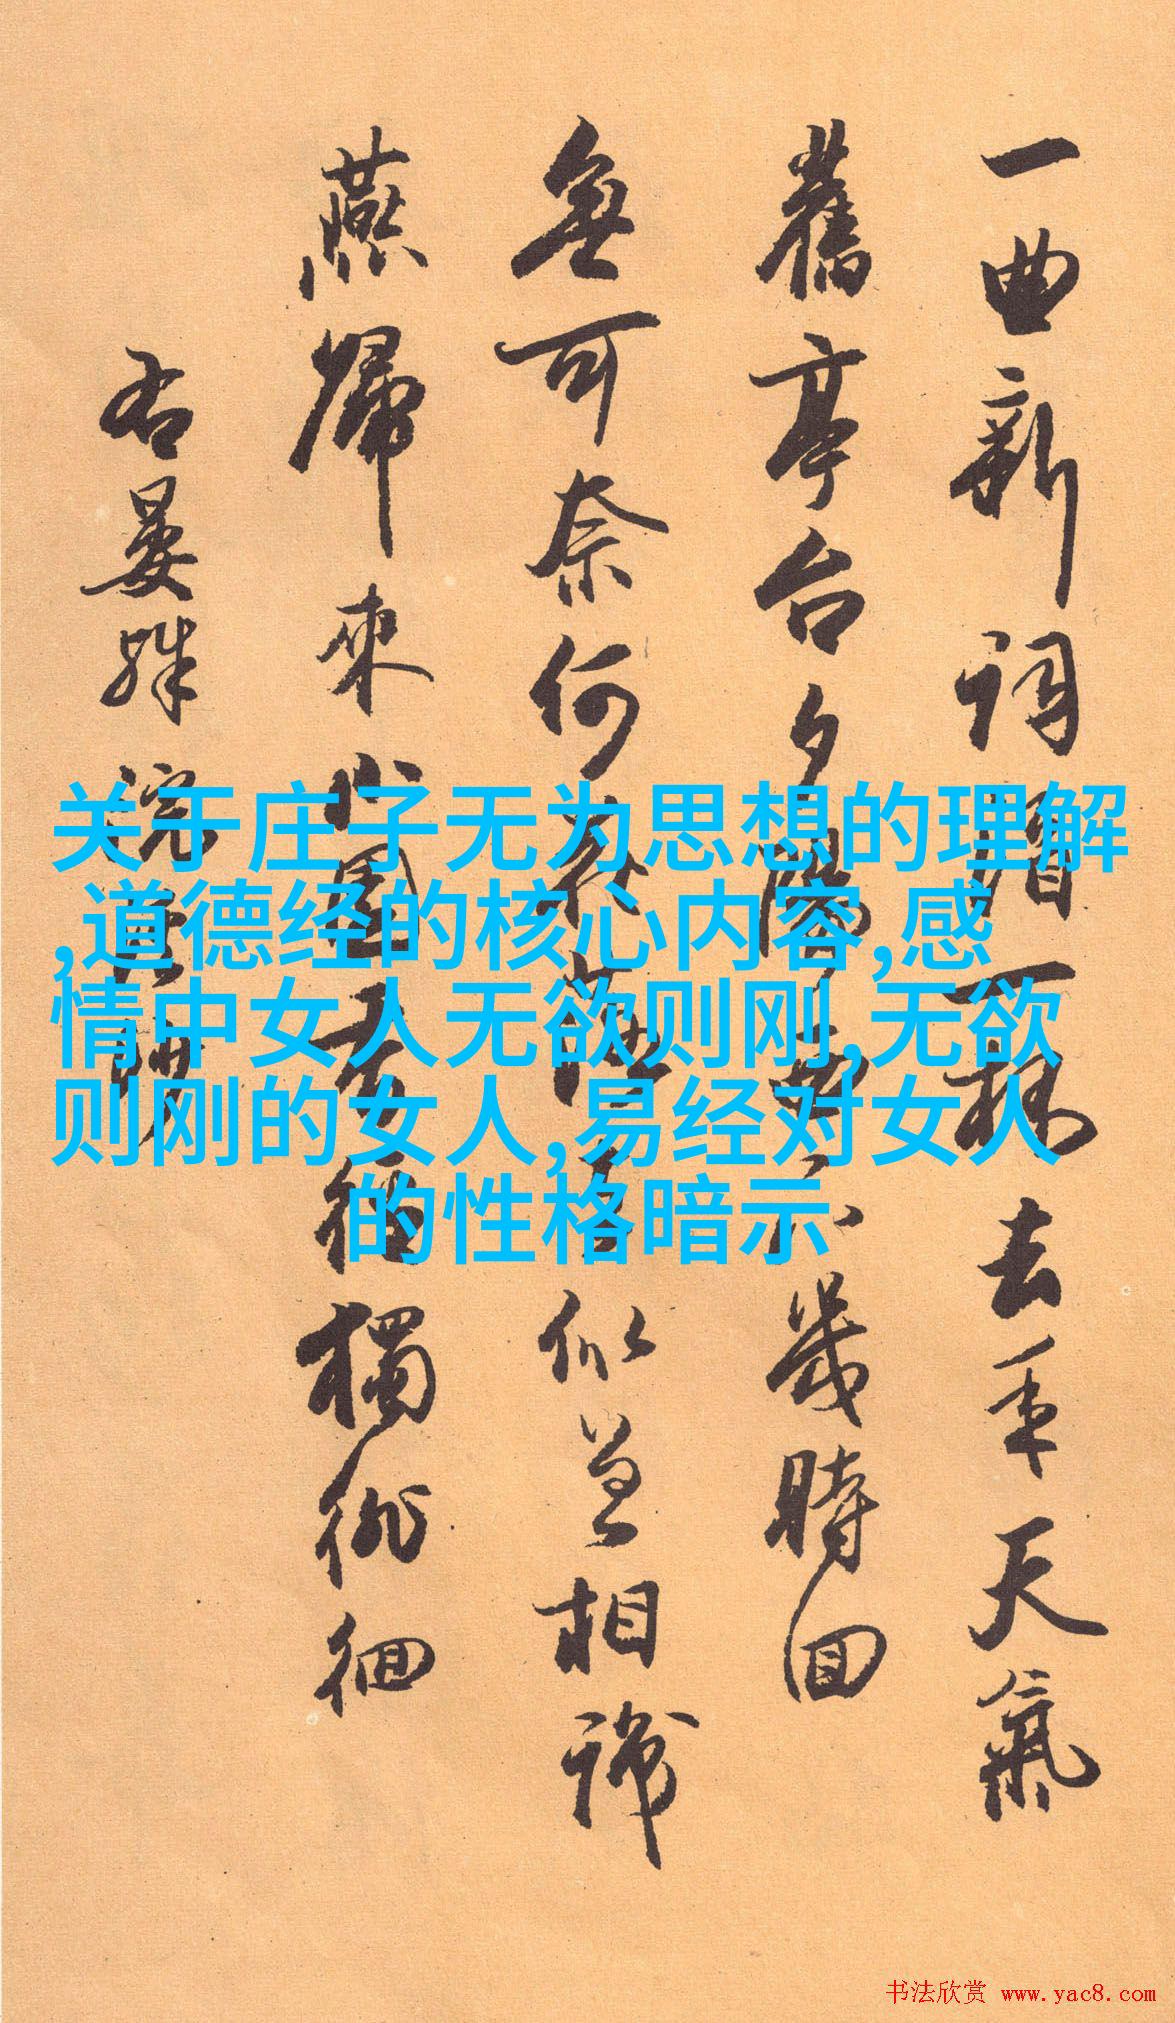 一曲新詞酒一杯去年天氣
舊亭台夕陽西下幾時回
無可奈何花落去似曾相識
燕歸來小園香徑獨徘徊
右晏殊浣溪
关于庄子无为思想的理解
,道德经的核心内容,感
情中女人无欲则刚,无欲
则刚的女人,易经对女人
的性格暗示
书法欣赏 www.yac8.com